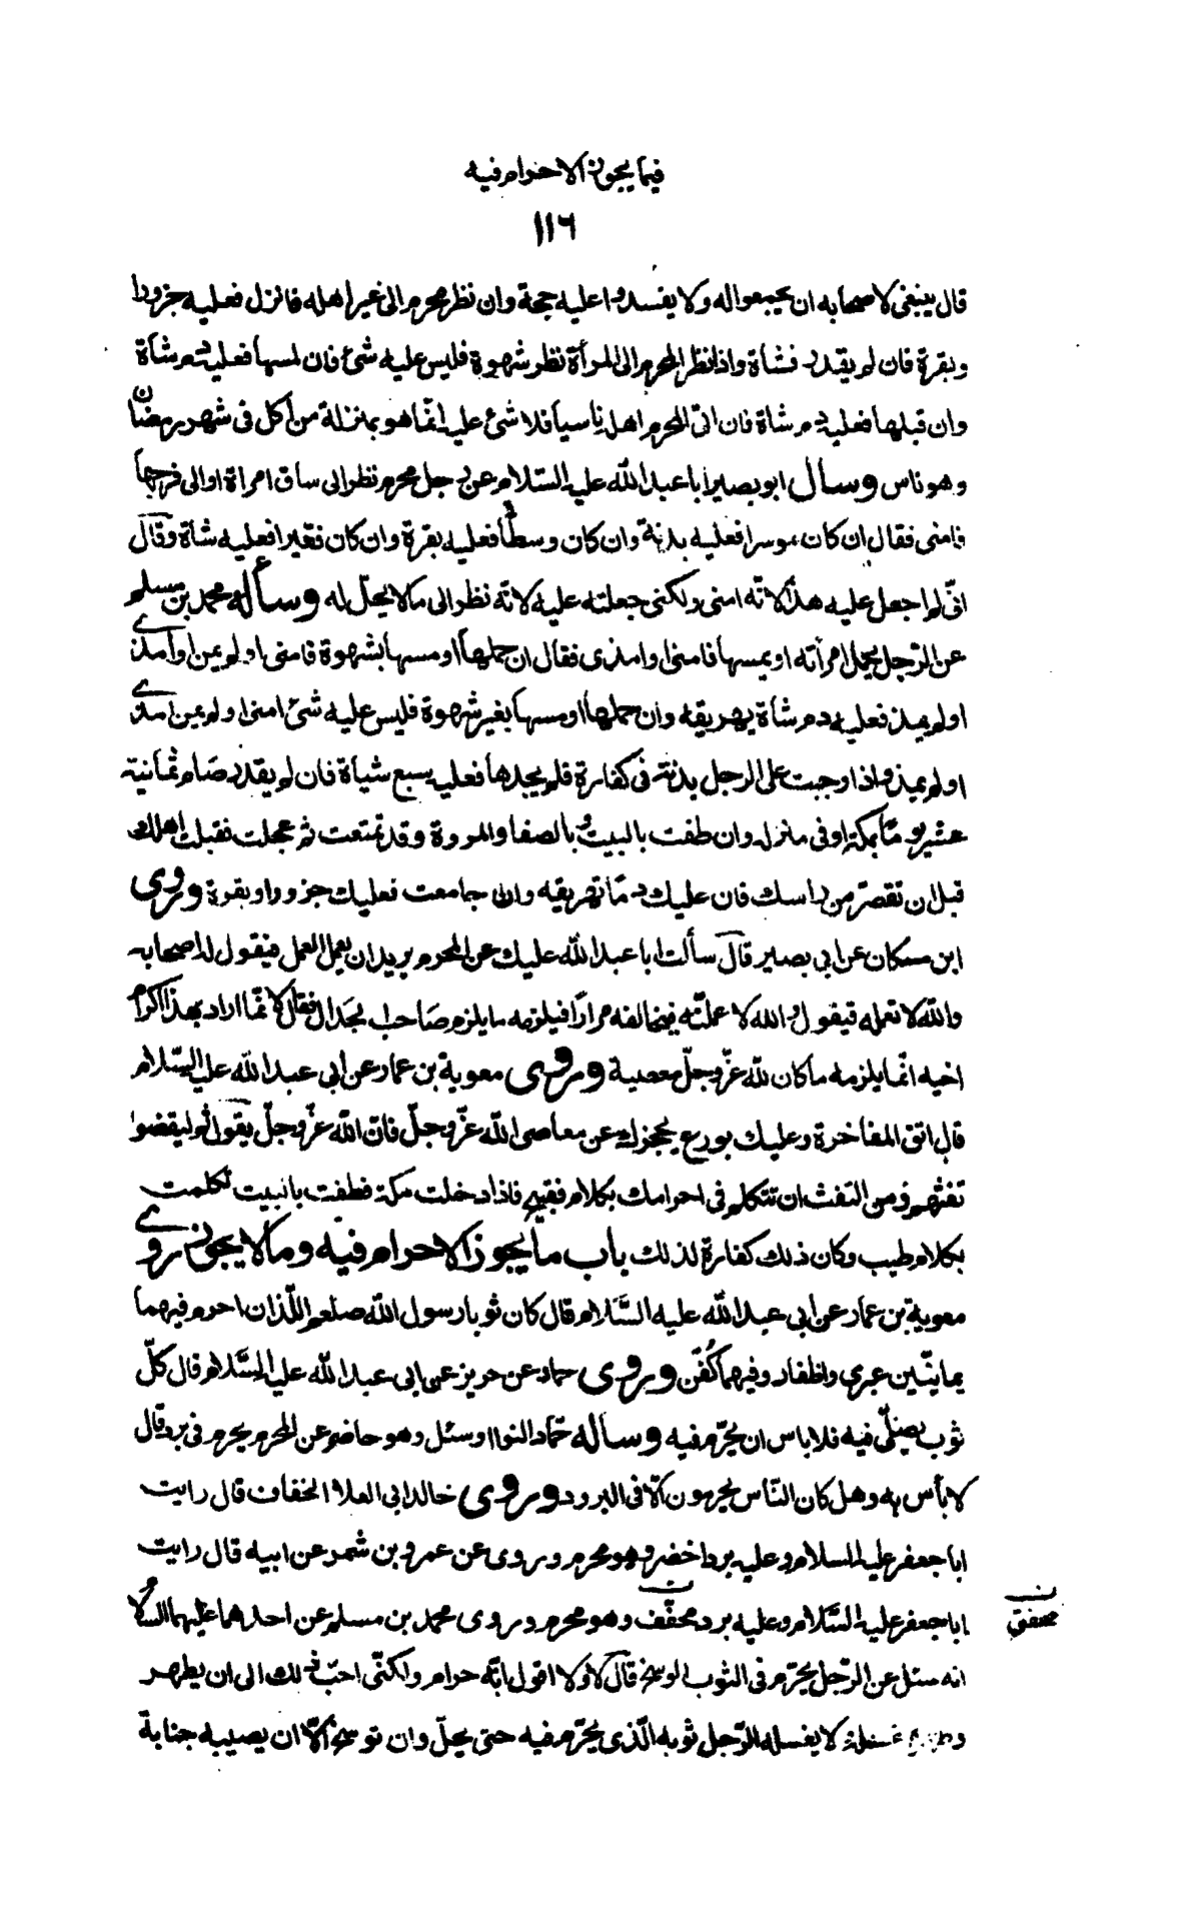 فيما يجوز الاحرام فيه
١١٦
قال ينبغي لاصحابه ان يجمعوا له ولا يفسدوا عليه حجة وان نظر محرم الى غير اهله فانزل فعليه جزورا
وبقرة فان لم يقدر فشاة واذا نظر المحرم الى المرأة نظر شهوة فليس عليه شئ فان لمسها فعليه دم شاة
وان قبلها فعليه دم شاة فان اتى المحرم اهله ناسيا فلا شئ عليه انما هو بمنزلة من اكل في شهر رمضان
وهو ناس وسأل ابو بصير ابا عبد الله عليه السلام عن رجل محرم نظر الى ساق امراة او الى فرجها
فامنى فقال ان كان موسرا فعليه بدنة وان كان وسطا فعليه بقرة وان كان فقيرا فعليه شاة وقال
انى لم اجعل عليه هذا لانه امنى ولكنى جعلته عليه لانه نظر الى ما لا يحل له وسأله محمد بن مسلم
عن الرجل يحمل امرأته او يمسها فامنى او امذى فقال ان حملها او مسها بشهوة فامنى او لم يمن او امذى
او لم يمذ فعليه دم شاة يهريقه وان حملها او مسها بغير شهوة فليس عليه شئ امنى او لم يمن امذى
او لم يمذ واذا وجبت على الرجل بدنة في كفارة فلم يجدها فعليه سبع شياة فان لم يقدر صام ثمانية
عشر يوما بمكة او في منزله وان طفت بالبيت وبالصفا والمروة وقد تمتعت ثم عجلت فقبلت اهلك
قبل ان تقصر من راسك فان عليك دما تهريقه وان جامعت فعليك جزور او بقرة وروى
ابن مسكان عن ابي بصير قال سألت ابا عبد الله عليك عن المحرم يريد ان يعمل العمل فيقول له اصحابه
والله لا تعمله فيقول والله لا عملنه فيخالفه مرارا فيلزمه ما يلزم صاحب الجدال فقال لا انما اراد بهذا اكرام
اخيه انما يلزمه ما كان لله عز وجل معصية وروى معوية بن عمار عن ابي عبد الله عليه السلام
قال اتق المفاخرة وعليك بورع يحجزك عن معاصى الله عز وجل فان الله عز وجل يقول ثم ليقضوا
تفثهم ومن التفث ان تتكلم في احرامك بكلام قبيح فاذا دخلت مكة فطفت بالبيت تكلمت
بكلام طيب وكان ذلك كفارة لذلك باب ما يجوز الاحرام فيه وما لا يجوز روى
معوية بن عمار عن ابي عبد الله عليه السلام قال كان ثوبا رسول الله صلعم اللذان احرم فيهما
يمانيين عبرى واظفار وفيهما كفن وروى حماد عن حريز عن ابي عبد الله عليه السلام قال كل
ثوب يصلى فيه فلا باس ان يحرم فيه وساله حماد النوا او سئل وهو حاضر عن المحرم يحرم في برد قال
لا بأس به وهل كان الناس يحرمون الا في البرود وروى خالد ابي العلا الخفاف قال رايت
ابا جعفر عليه السلام وعليه برد اخضر وهو محرم وروى عن عمرو بن شمر عن ابيه قال رايت
ابا جعفر عليه السلام وعليه برد محفف وهو محرم وروى محمد بن مسلم عن احدهما عليهما السلام
انه سئل عن الرجل يحرم في الثوب الوسخ قال لا ولا اقول انه حرام ولكنى احب ذلك الى ان يطهر
لا يغسله الرجل ثوبه الذى يحرم فيه حتى يحل وان توسخ الا ان يصيبه جنابة